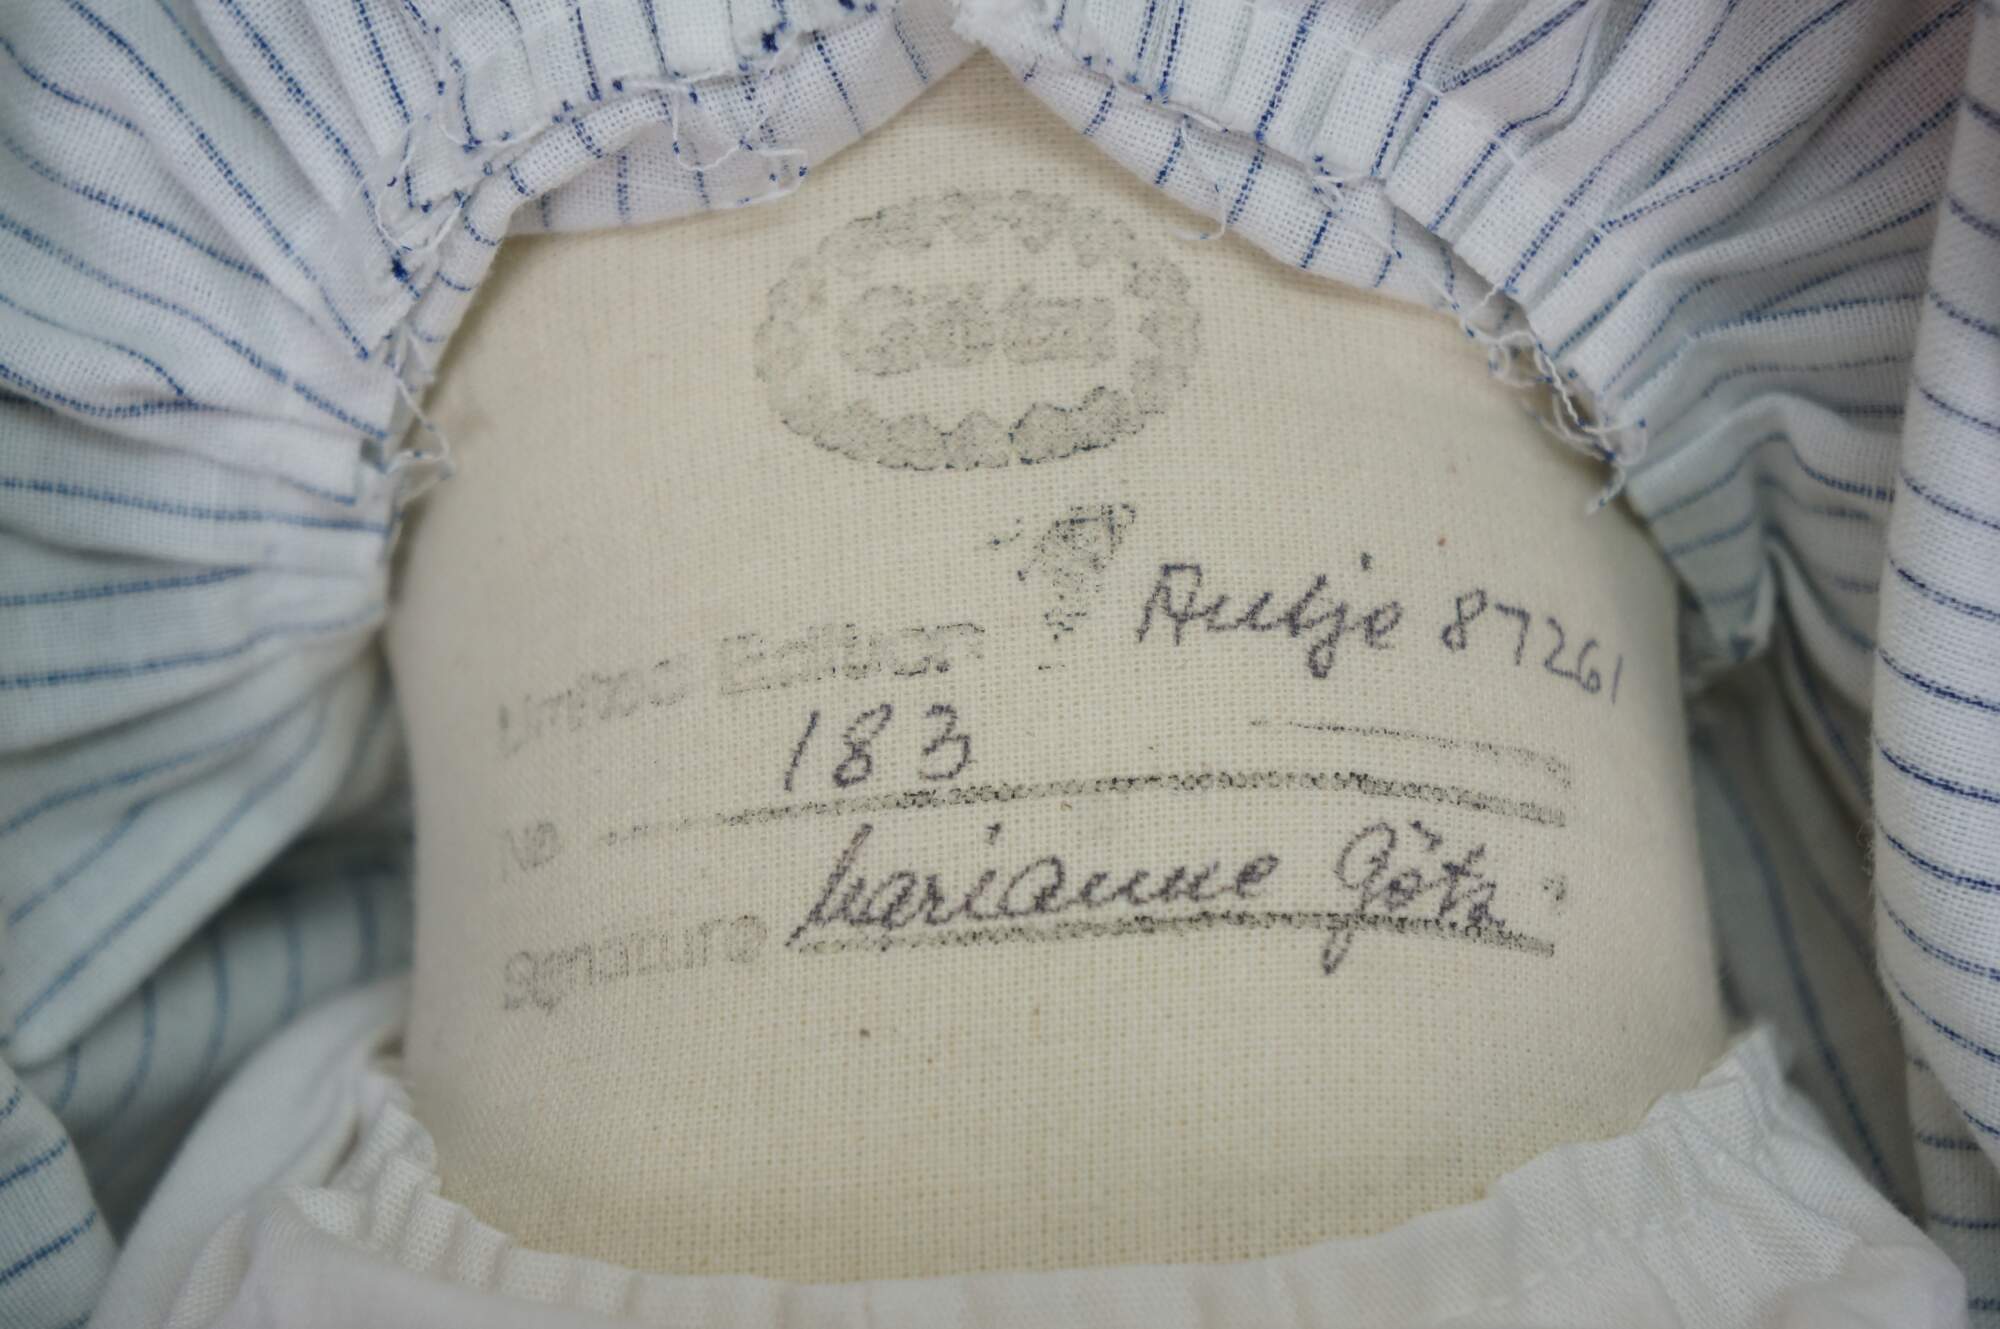 Götz
Antje 87261
Limited Edition
183
No
Marianne Götz
Signature